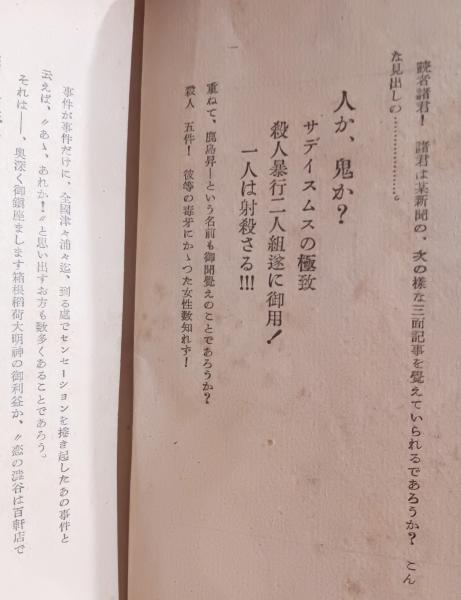 読者諸君！　諸君は某新聞の、次の様な三面記事を覺えていられるであろうか？　こん
な見出しの………………。
人か、鬼か？
サデイスムスの極致
殺人暴行二人組遂に御用！
一人は射殺さる!!!
重ねて、鹿島昇―という名前も御聞覺えのことであろうか？
殺人　五件！　彼等の毒牙にかゝつた女性数知れず！
事件が事件だけに、全國津々浦々迄、到る處でセンセーションを捲き起したあの事件と
云えば、〃あゝ、あれか！〃と思い出すお方も数多くあることであろう。
それは――、奥深く御鎭座まします箱根稲荷大明神の御利益か、〃恋の澁谷は百軒店で